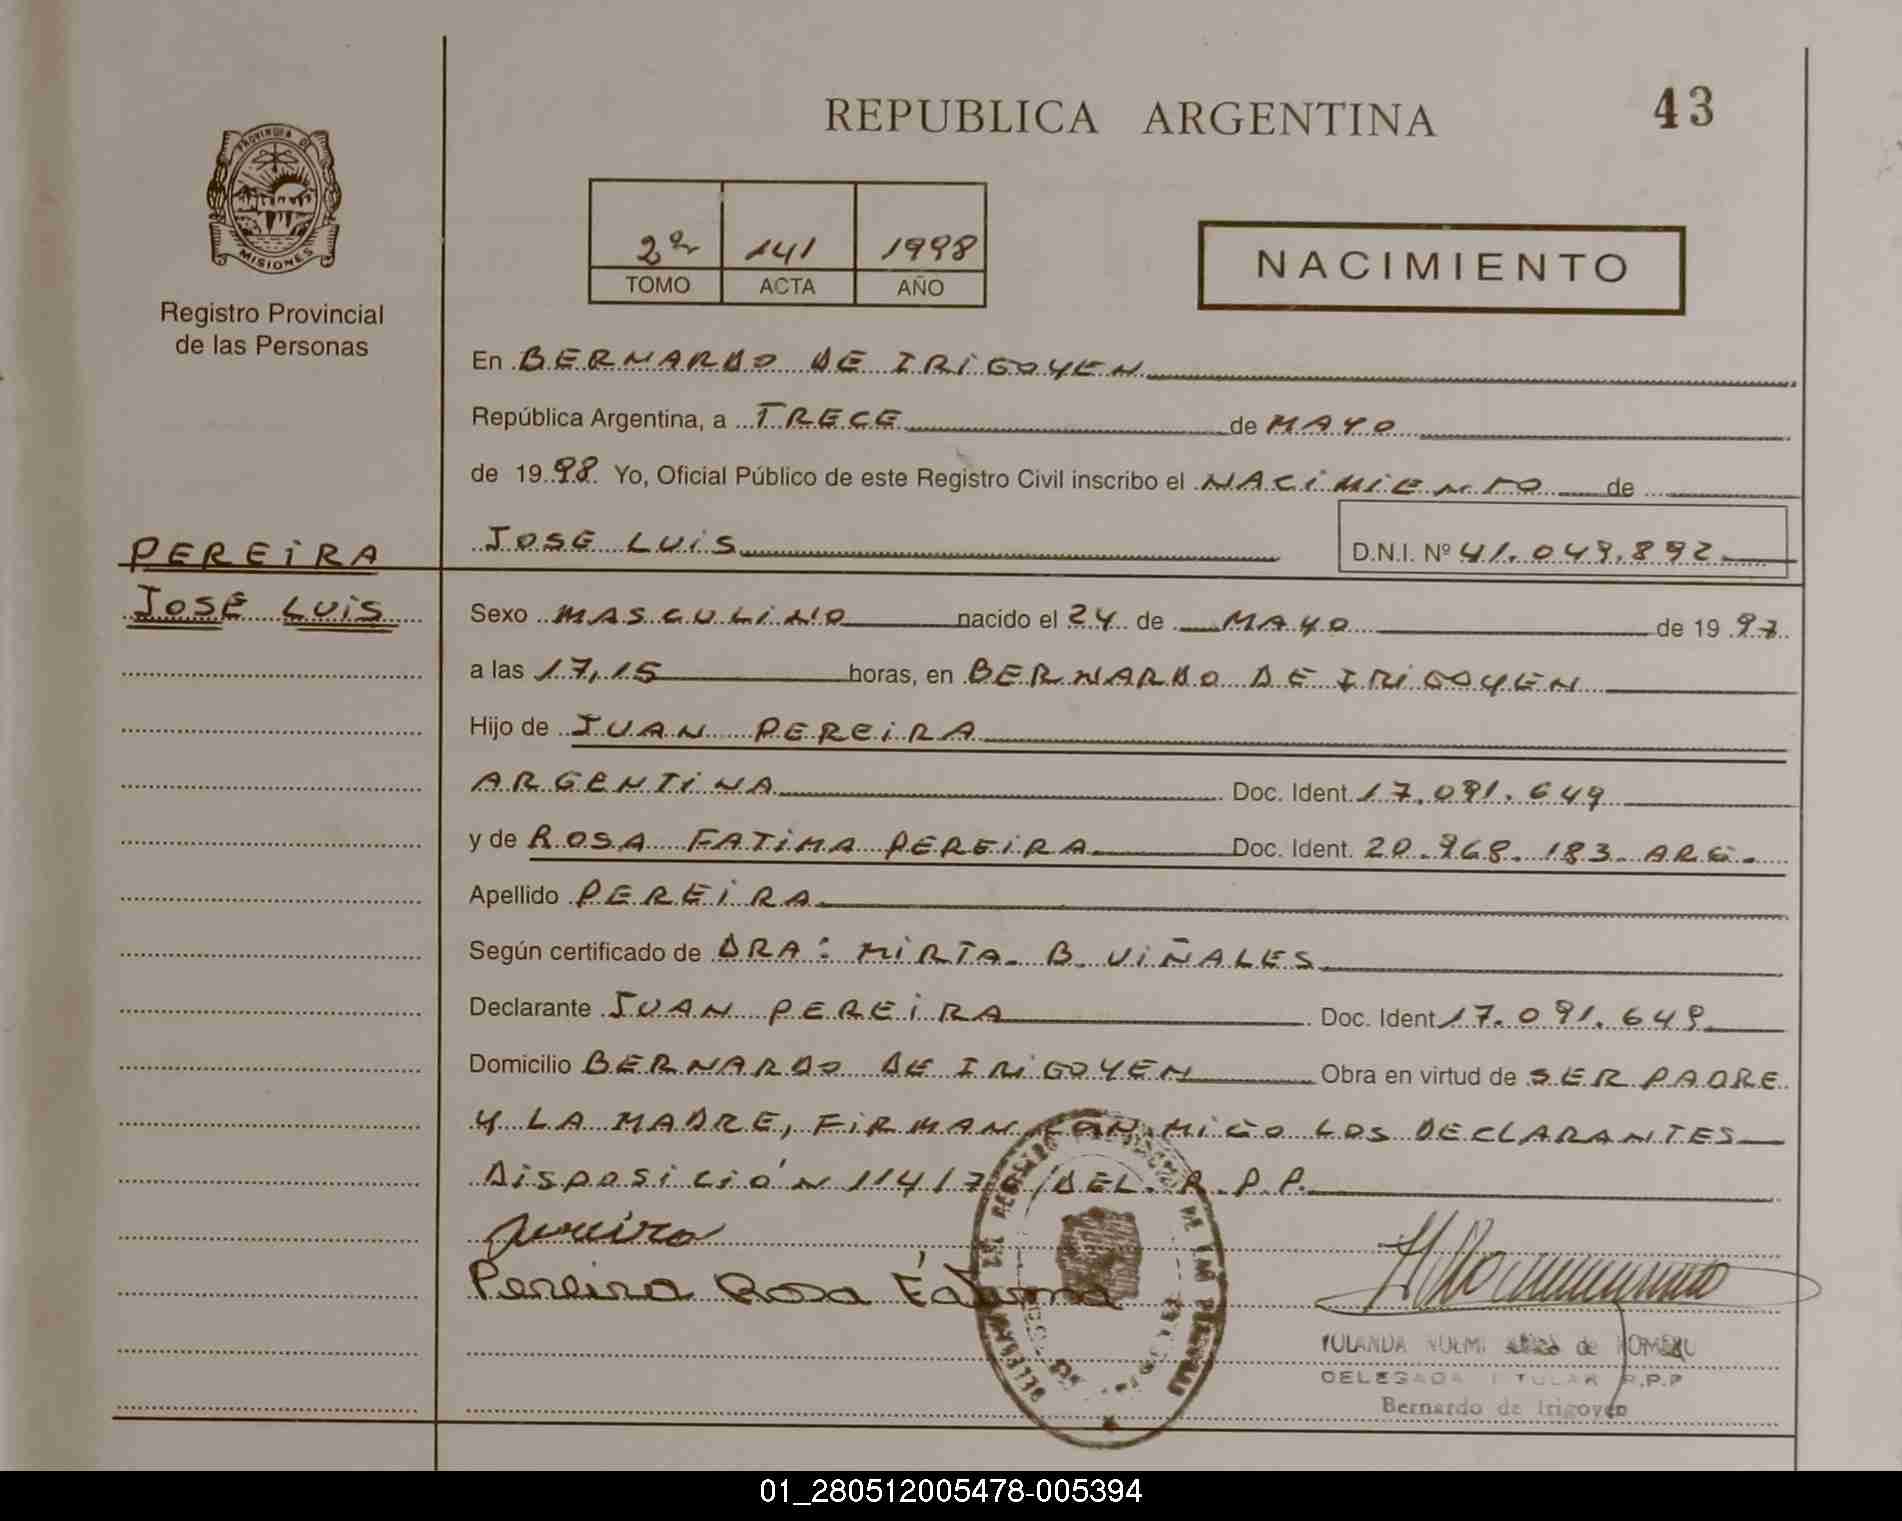 REPUBLICA ARGENTINA
43
PROVINCIA DE
MISIONES
Registro Provincial
de las Personas
2º 141 1998
TOMO ACTA AÑO
NACIMIENTO
En BERNARDO DE IRIGOYEN
República Argentina, a TRECE de MAYO
de 1998 Yo, Oficial Público de este Registro Civil inscribo el NACIMIENTO de
JOSE LUIS D.N.I. Nº 41.049.892
PEREIRA
JOSÉ LUIS
Sexo MASCULINO nacido el 24 de MAYO de 1997
a las 17,15 horas, en BERNARDO DE IRIGOYEN
Hijo de JUAN PEREIRA
ARGENTINA Doc. Ident. 17.091.649
y de ROSA FATIMA PEREIRA Doc. Ident. 20.968.183 ARG.
Apellido PEREIRA
Según certificado de DRA: MIRTA B. VIÑALES
Declarante JUAN PEREIRA Doc. Ident 17.091.649
Domicilio BERNARDO DE IRIGOYEN Obra en virtud de SER PADRE
Y LA MADRE, FIRMAN CONMIGO LOS DECLARANTES
DISPOSICIÓN 114/70/DEL. R.P.P.
Pereira
Pereira Rosa Fátima
YOLANDA NOEMI de ROMERO
DELEGADA TITULAR R.P.P
Bernardo de Irigoyen
01_280512005478-005394